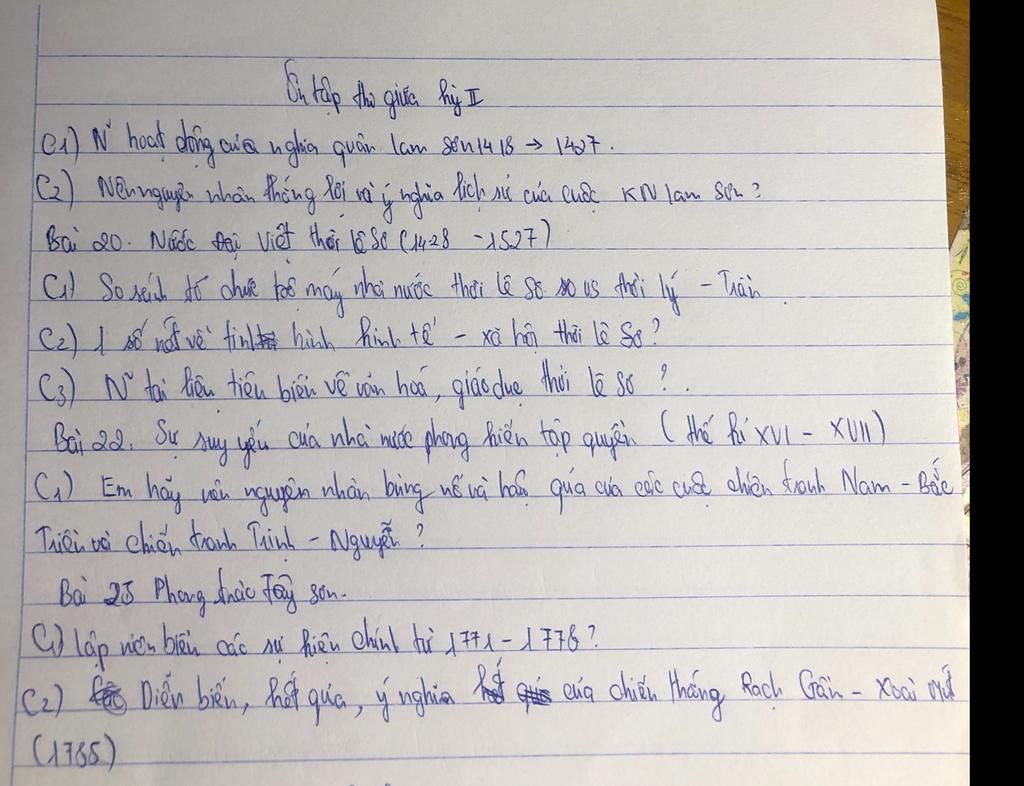 Ôn tập thi giữa kỳ II
C1) N~ hoạt động của nghĩa quân lam sơn 1418 → 1427.
C2) Nêu nguyên nhân thắng lợi và ý nghĩa lịch sử của cuộc KN lam Sơn?
Bài 20. Nước Đại Việt thời lê Sơ (1428 - 1527)
C1) So sánh tổ chức bộ máy nhà nước thời lê Sơ so vs thời lý - Trần
C2) 1 số nét về tình hình kinh tế - xã hội thời lê Sơ?
C3) N~ tài liệu tiêu biểu về văn hoá, giáo dục thời lê sơ?.
Bài 22. Sự suy yếu của nhà nước phong kiến tập quyền (thế kỉ XVI - XVII)
C1) Em hãy nêu nguyên nhân bùng nổ và hậu quả của các cuộc chiến tranh Nam - Bắc
Triều và chiến tranh Trịnh - Nguyễn?
Bài 25 Phong trào Tây sơn.
C1) lập niên biểu các sự kiện chính từ 1771 - 1776?
C2) Diễn biến, kết quả, ý nghĩa của chiến thắng Rạch Gầm - Xoài mút
(1785)